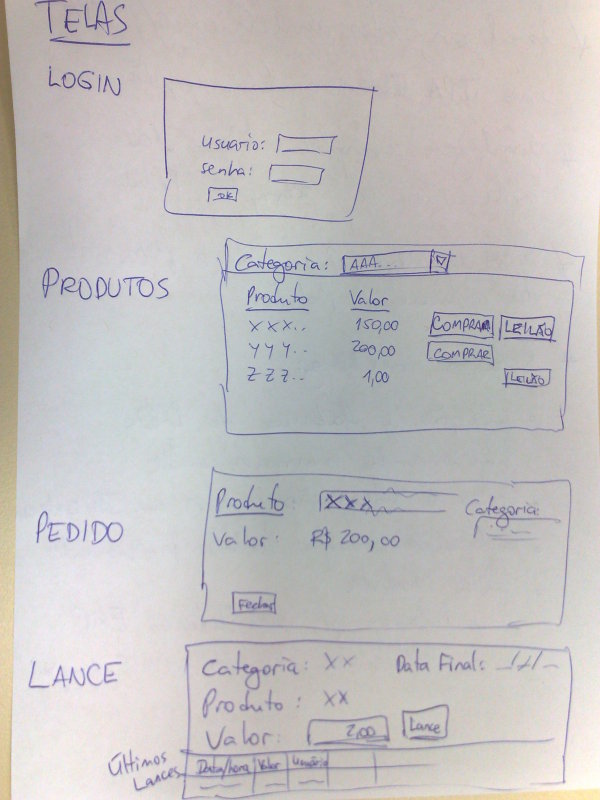 TELAS
LOGIN
usuario:
senha:
OK
PRODUTOS
Categoria: AAA...
Produto Valor
XXX.. 150,00 COMPRAR LEILÃO
YYY.. 200,00 COMPRAR
ZZZ.. 1,00 LEILÃO
PEDIDO
Produto: XXX Categoria:
Valor: R$ 200,00
Fechar
LANCE
Categoria: XX Data Final: _/_/_
Produto: XX
Valor: 2,00 Lance
Últimos Lances
Data/hora Valor Usuário